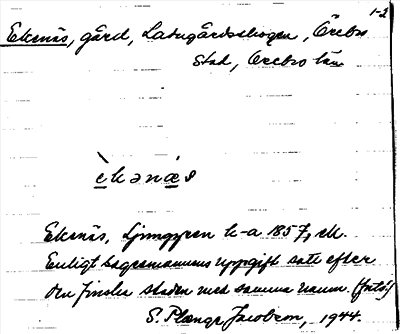 1-2
Ekenäs, gård, Ladugårdsskogen, Örebro
stad, Örebro län
èkənæs
Ekenäs, Ljunggren k-a 1857, ek.
Enligt sagesmannens uppgift satt efter
den finska staden med samma namn.
S. Plange Jacobson, 1944.